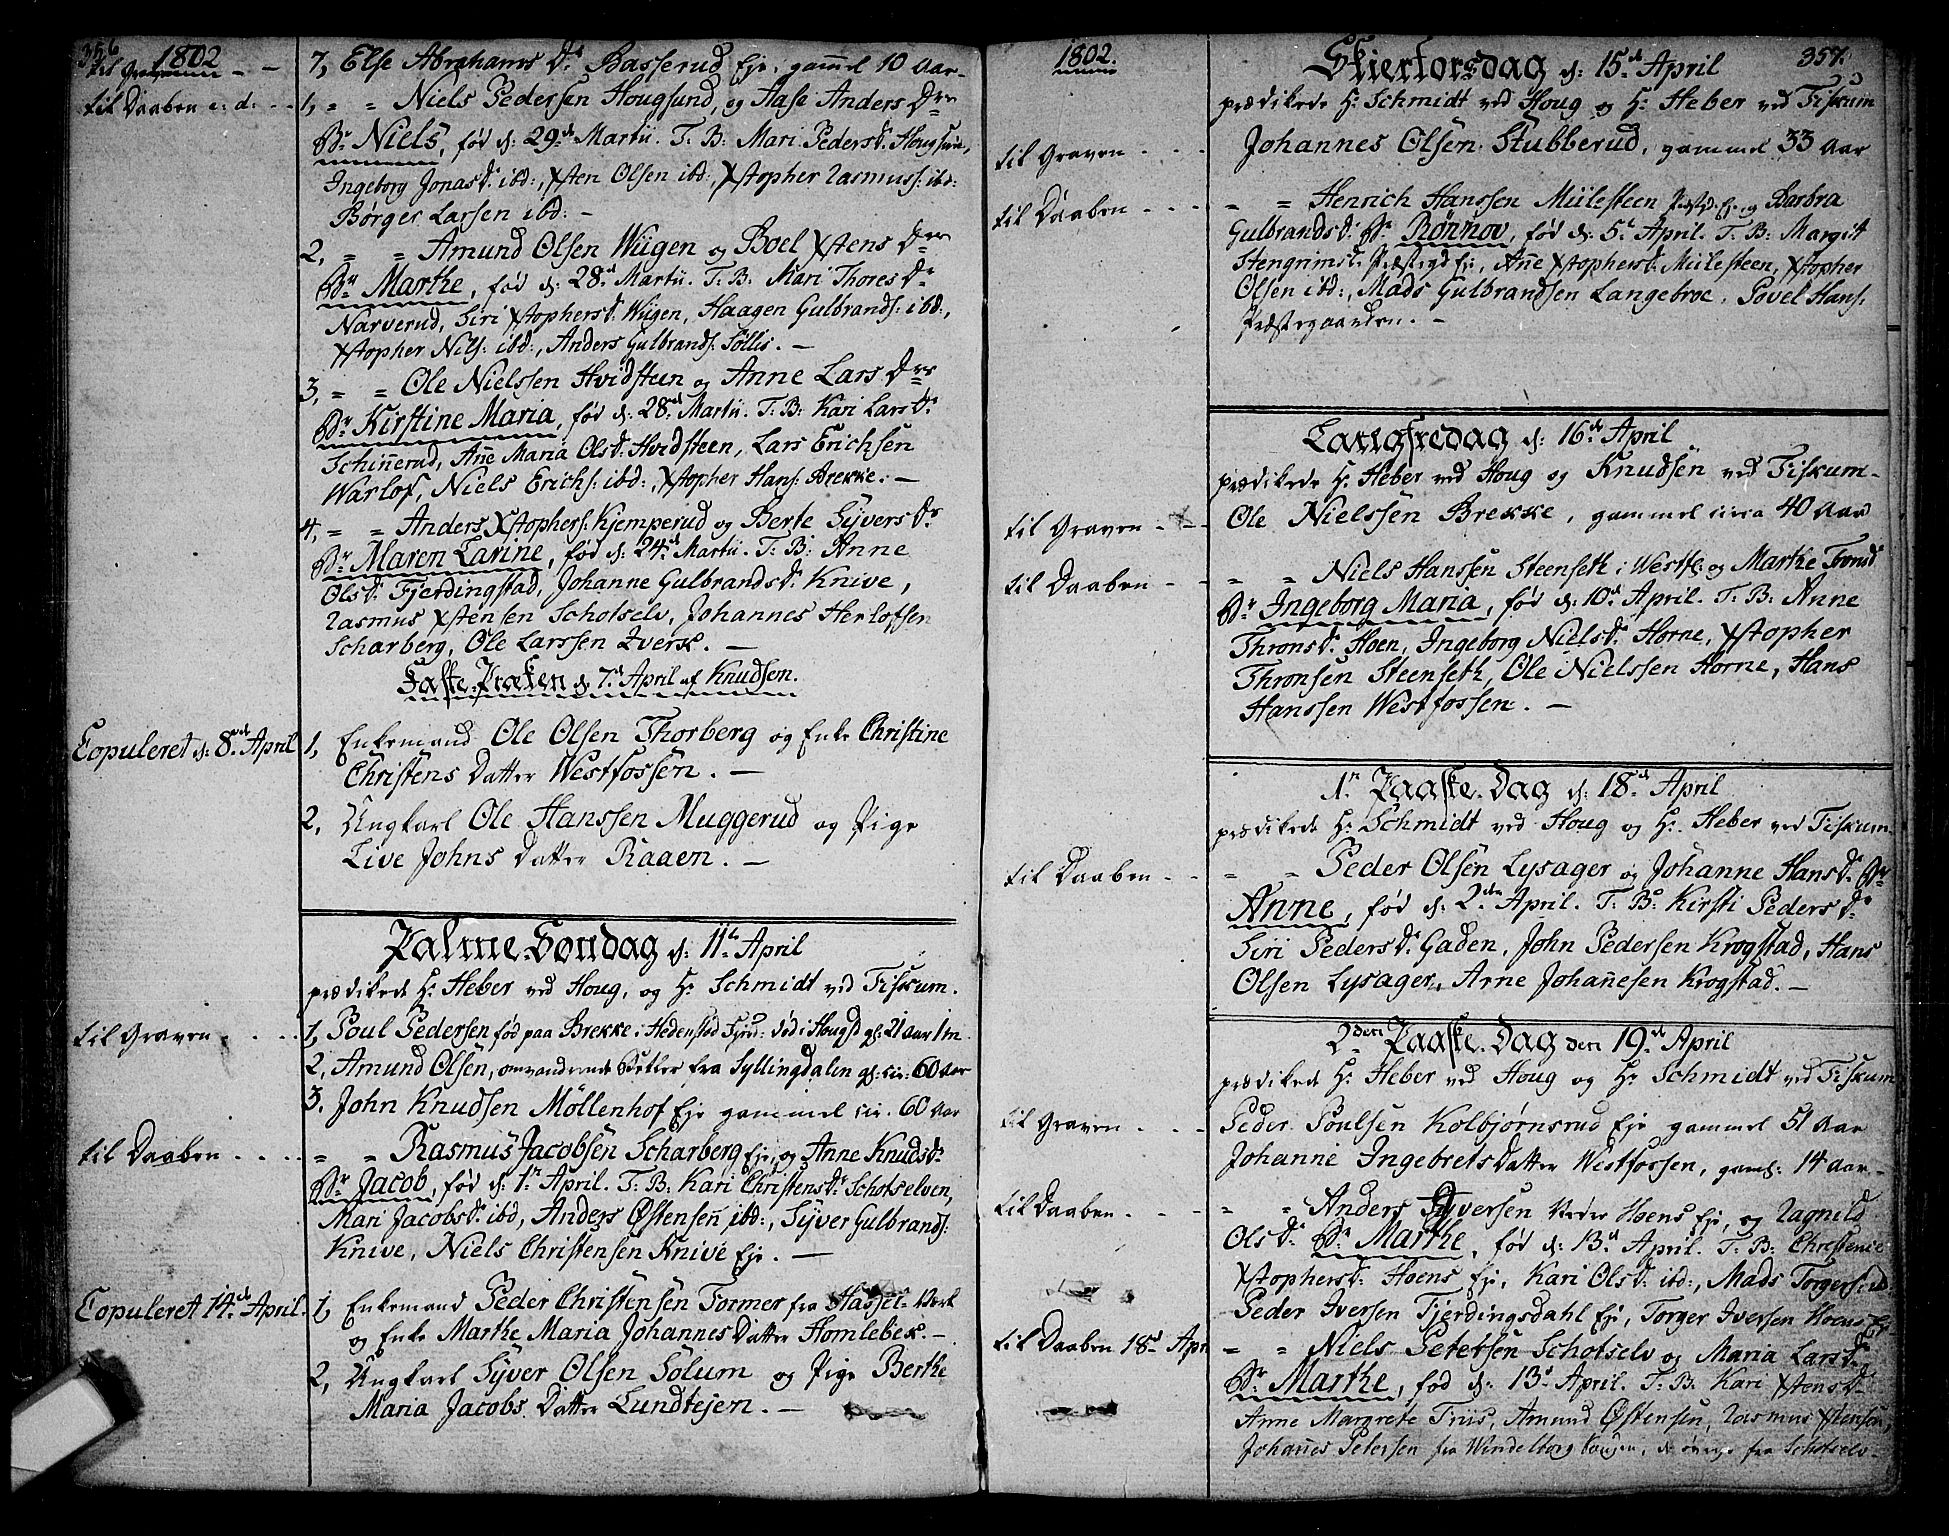 356
1802
til Graven - -
7, Else Abrahams Dr Basserud Eje, gam̄el 10 Aar.
til Daaben e: d: - -
1, " " Niels Pedersen Hougsund, og Aase Anders Dr
Br Niels, fød d: 29de Martii. T. B: Mari Pedersdr Hougsund,
Ingeborg Jonasdr ibd:, Xsten Olsen ibd:, Xstopher Rasmuss: ibd:
Børger Larsen ibd: -
2, " " Amund Olsen Wiigen og Boel Xstens Dr
Br Marthe, fød d: 28d Martii. T. B: Mari Thores Dr
Narverud, Siri Xstophersdr Wiigen, Haagen Gulbrands: ibd:,
Xstopher Nils: ibd:, Anders Gulbrands: Søllis. -
3, " " Ole Nielssen Hvidsteen og Anne Lars Dr
Br Kirstine Maria, fød d: 28d Martii. T. B: Kari Lars Dr
Schin̄erud, An̄e Maria Olsdr Hvidsteen, Lars Erichsen
Warlof, Niels Erichs: ibd:, Xstopher Hans: Brekke. -
4, " " Anders Xstophers: Kjemperud og Berte Syvers Dr
Br Maren Carine, fød d: 24d Martii. T. B: Anne
Olsdr Fjerdingstad, Johanne Gulbrandsdr Knive,
Rasmus Xstensen Schotselv, Johannes Herlofsen
Scharberg, Ole Larssen Zverk. -
Faste-Præken d: 7d April af Knudsen.
Copuleret d: 8de April
1, Enkemand Ole Olsen Thorberg og Enke Christine
Christens Datter Westfossen. -
2, Ungkarl Ole Hanssen Muggerud og Pige
Live Johns Datter Raaen. -
Palme-Søndag d: 11te April
prædikede Hr Heber ved Houg, og Hr Schmidt ved Fiskum.
til Graven . - -
1, Poul Pedersen fød paa Brekke i Hedensted Fjerd: død i Hougsd gl: 21 Aar 1 m.
2, Amund Olsen, omvandrende Betler fra Syllingdalen gl: cir: 60 Aar
3, John Knudsen Møllenhof Eje gammel cir. 60 Aar
til Daaben . . . .
" " Rasmus Jacobsen Scharberg Eje, og Anne Knudsdr
Br Jacob, fød d: 1r April. T. B: Kari Christensdr Schotselven,
Mari Jacobsdr ibd, Anders Østensen̄ ibd:, Syver Gulbrands:
Knive, Niels Christensen Knive Eje. -
Copuleret 14d April.
1, Enkemand Peder Christensen Former fra Hassel-Verk
og Enke Marthe Maria Johannes Datter Homlebek. -
2, Ungkarl Syver Olsen Solum og Pige Berthe
Maria Jacobs Datter Lundtejen. -
1802.
357.
Skiertorsdag d: 15d April
prædikede Hr Schmidt ved Houg og Hr Heber ved Fiskum
til Graven - - -
Johannes Olsen Stubberud, gammel 33 Aar
til Daaben - - - -
" " Henrich Hanssen Miilesteen Præstgd Eje og Barbra
Gulbrandsdr Br Rønnov, fød d: 5te April. T. B: Margit
Stengrimsdr Præstegd Eje, An̄e Xstophersdr Miilesteen, Xstopher
Olsen ibd:, Mads Gulbrandsen Langebroe, Povel Hans:
Præstegaarden. -
Langfredag d: 16de April
prædikede Hr Heber ved Houg og Knudsen ved Fiskum-
til Graven - - -
Ole Nielssen Brekke, gammel circa 40 Aar
til Daaben - -
" " Niels Hanssen Steenseth i Westf: og Marthe Tronsdr
Br Ingeborg Maria, fød d: 10de April. T. B: Anne
Thronsdr Hoen, Ingeborg Nielsdr Horne, Xstopher
Thronsen Steenseth, Ole Nielssen Horne, Hans
Hanssen Westfossen. -
1r Paaske-Dag d: 18de April
prædikede Hr Schmidt ved Houg og Hr Heber ved Fiskum.
til Daaben - -
" " Peder Olsen Lysager og Johanne Hansdr Br
Anne, fød d: 2den April. T. B: Kirsti Peders Dr
Siri Peders Dr Gaden, John Pedersen Krogstad, Hans
Olsen Lysager, Arne Johan̄esen Krogstad. -
2den Paaske-Dag den 19de April
prædikede Hr Heber ved Houg og Hr Schmidt ved Fiskum
til Graven . - -
Peder Poulsen Kolbjørnsrud Eje gammel 51 Aar
Johanne Ingebrets Datter Westfossen, gaml: 14 Aar-
til Daaben . - - -
" " Anders Syversen Neder Hoens Eje, og Ragnild
Olsdr Br Marthe, fød d: 13d April. T. B: Christence
Xstophersdr Hoens Eje, Kari Olsdr ibd:, Mads Torgers: ibd
Peder Iversen Fjerdingsdahl Eje, Torger Iversen Hoens Eje
til Daaben 18d Apr
" " Niels Petersen Schotselv og Maria Larsdr
Br Marthe, fød d: 13d April. T. B: Kari Xstensdr
Anne Margrete Friis, Amund Østensen, Rasmus Xstensen,
Johan̄es Petersen fra Windelborg Sougen, de øvrige fra Schotselv-